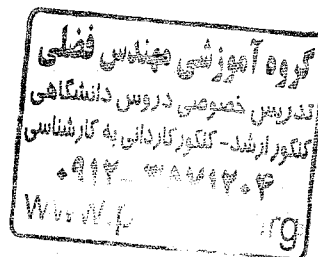 گروه آموزشی مهندس فضلی
تدریس خصوصی دروس دانشگاهی
کنکور ارشد - کنکور کاردانی به کارشناسی
۰۹۱۲ - ۳۸۷۱۲۰۴